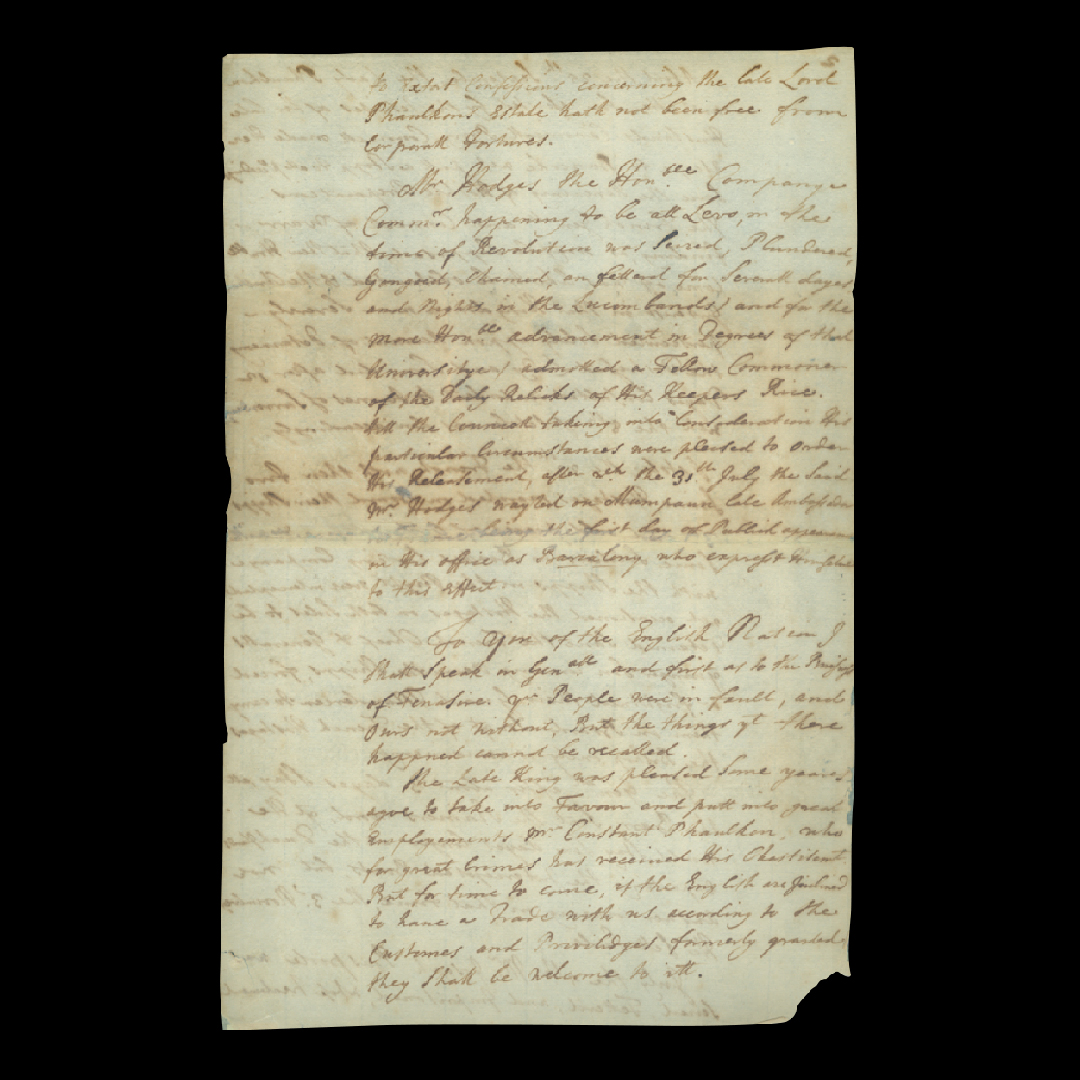 to Extort Confessions Concerning the late Lord
Phaulkons Estate hath not been free from
Corporall Tortures.
Mr Hodges the Hon.ble Companys
Coun.r happening to be att Levo, in the
time of Revolution was Seized, Plundered,
Congoed, Chained, an fetterd for Seventh dayes
and Nights in the Lucombands / and for the
more Hon.ble advancement in Degrees of that
Universitye / admitted a Fellow Commoner
of the Daily Relicks of His Keepers Rice.
till the Councell taking into Consideration His
particular Circumstances were pleased to Order
His Releasement, after wch. the 31th July the Said
Mr. Hodges wayted on late Ambassador
being the first day of Publick appearance
in His office as Barcalong, who exprest himselfe
to this Effect.
To You of the English Nation I
Shall Speak in Genall and first as to the
of Tenasire. yr People were in fault, and
Ours not without, But the things yt there
happned cannot be recalled.
The Late King was pleased Some yeares
agoe to take into Favour and putt into great
Employements Mr. Constant Phaulkon, who
for great Crimes has received His Chastisment,
But for time to come, if the English are Inclined
to have a Trade with us according to the
Customes and Priviledges formerly granted,
they Shall be welcome to itt.